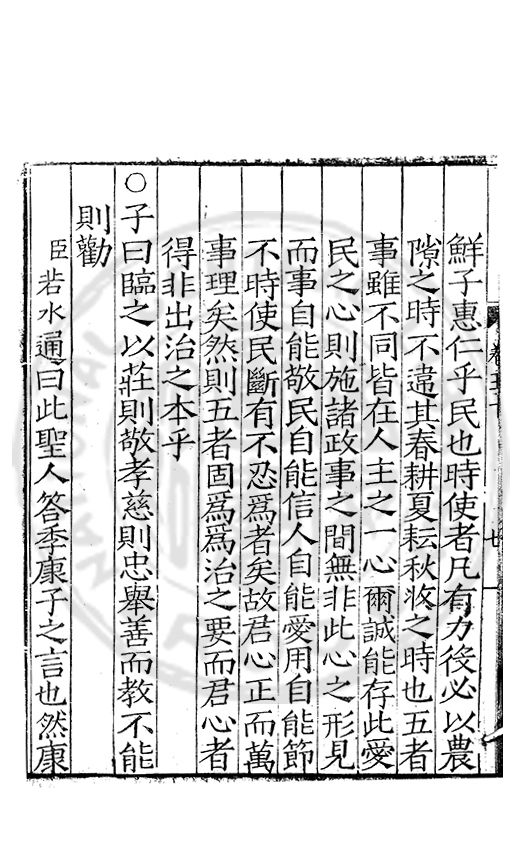 鮮子惠仁乎民也時使者凡有力役必以農
隙之時不違其春耕夏耘秋收之時也五者
事雖不同皆在人主之一心爾誠能存此愛
民之心則施諸政事之間無非此心之形見
而事自能敬民自能信人自能愛用自能節
不時使民斷有不忍爲者矣故君心正而萬
事理矣然則五者固爲爲治之要而君心者
得非出治之本乎
○子曰臨之以莊則敬孝慈則忠舉善而教不能
則勸
臣若水通曰此聖人答季康子之言也然康